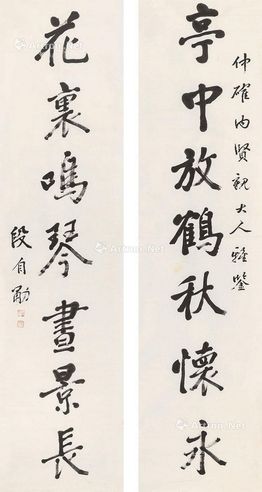 亭中放鶴秋懷永
仲確內賢親大人雅鑒
花裏鳴琴晝景長
段自勛